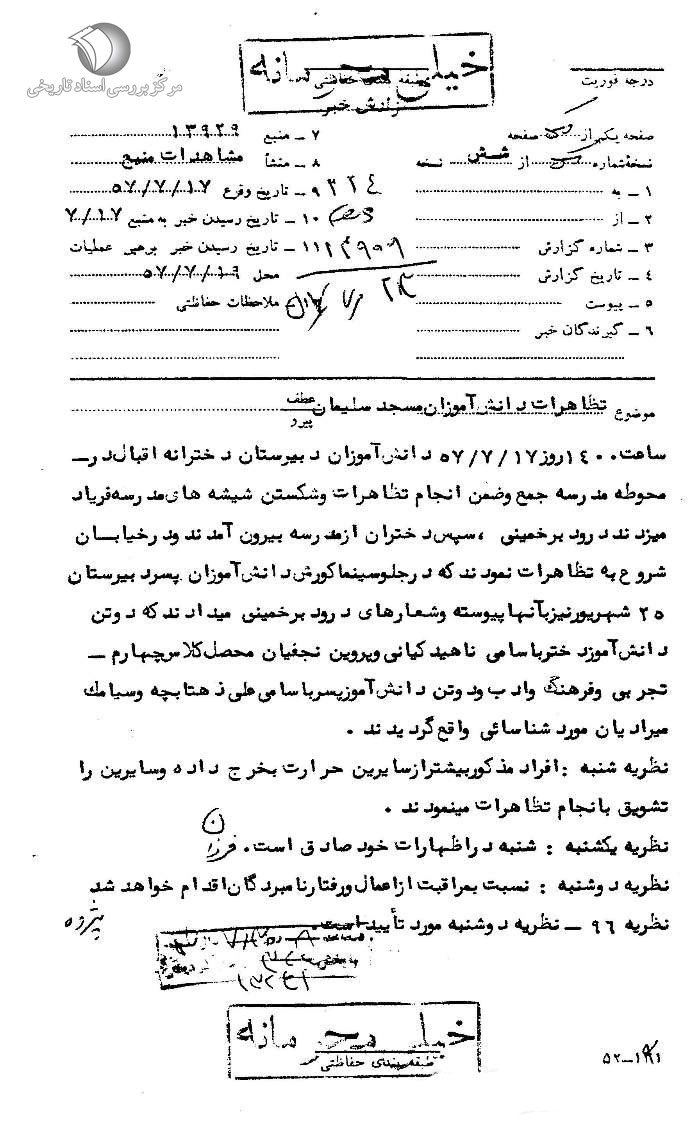 مرکز بررسی اسناد تاریخی
خیلی محرمانه
طبقه بندی حفاظتی
گزارش خبر
درجه فوریت
صفحه یکم از صفحه
نسخهٔ شماره از شش نسخه
۱ ـ به ۳۲۴
۲ ـ از
۳ ـ شماره گزارش
۴ ـ تاریخ گزارش
۵ ـ پیوست
۶ ـ گیرندگان خبر
۷ ـ منبع ۱۳۹۲۹
۸ ـ منشأ مشاهدات منبع
۹ ـ تاریخ وقوع ۵۷/۷/۱۷
۱۰ ـ تاریخ رسیدن خبر به منبع ۷/۱۷
۱۱ ـ تاریخ رسیدن خبر برهبر عملیات
محل ۵۷/۷/۱۹
ملاحظات حفاظتی
موضوع تظاهرات دانش آموزان مسجد سلیمان عطف
پیرو
ساعت ۱۴۰۰ روز ۵۷/۷/۱۷ دانش آموزان دبیرستان دخترانه اقبال در ـ
محوطه مدرسه جمع وضمن انجام تظاهرات وشکستن شیشه های مدرسه فریاد
میزدند درود برخمینی ، سپس دختران ازمدرسه بیرون آمدند ودرخیابان
شروع به تظاهرات نمودند که درجلو سینما کورش دانش آموزان پسر دبیرستان
۲۵ شهریور نیز بآنها پیوسته وشعارهای درود برخمینی میدادند که دوتن
دانش آموز دختر باسامی ناهید کیانی وپروین نجفیان محصل کلاس چهارم ـ
تجربی وفرهنگ وادب ودوتن دانش آموز پسر باسامی علی ذهتابچه وسیامک
میرادیان مورد شناسائی واقع گردیدند .
نظریه شنبه : افراد مذکور بیشتر از سایرین حرارت بخرج داده وسایرین را
تشویق بانجام تظاهرات مینمودند .
نظریه یکشنبه : شنبه در اظهارات خود صادق است . فرزان
نظریه دوشنبه : نسبت بمراقبت از اعمال ورفتار نامبردگان اقدام خواهد شد
نظریه ۹۶ ـ نظریه دوشنبه مورد تأیید است . پژوه
خیلی محرمانه
طبقه بندی حفاظتی